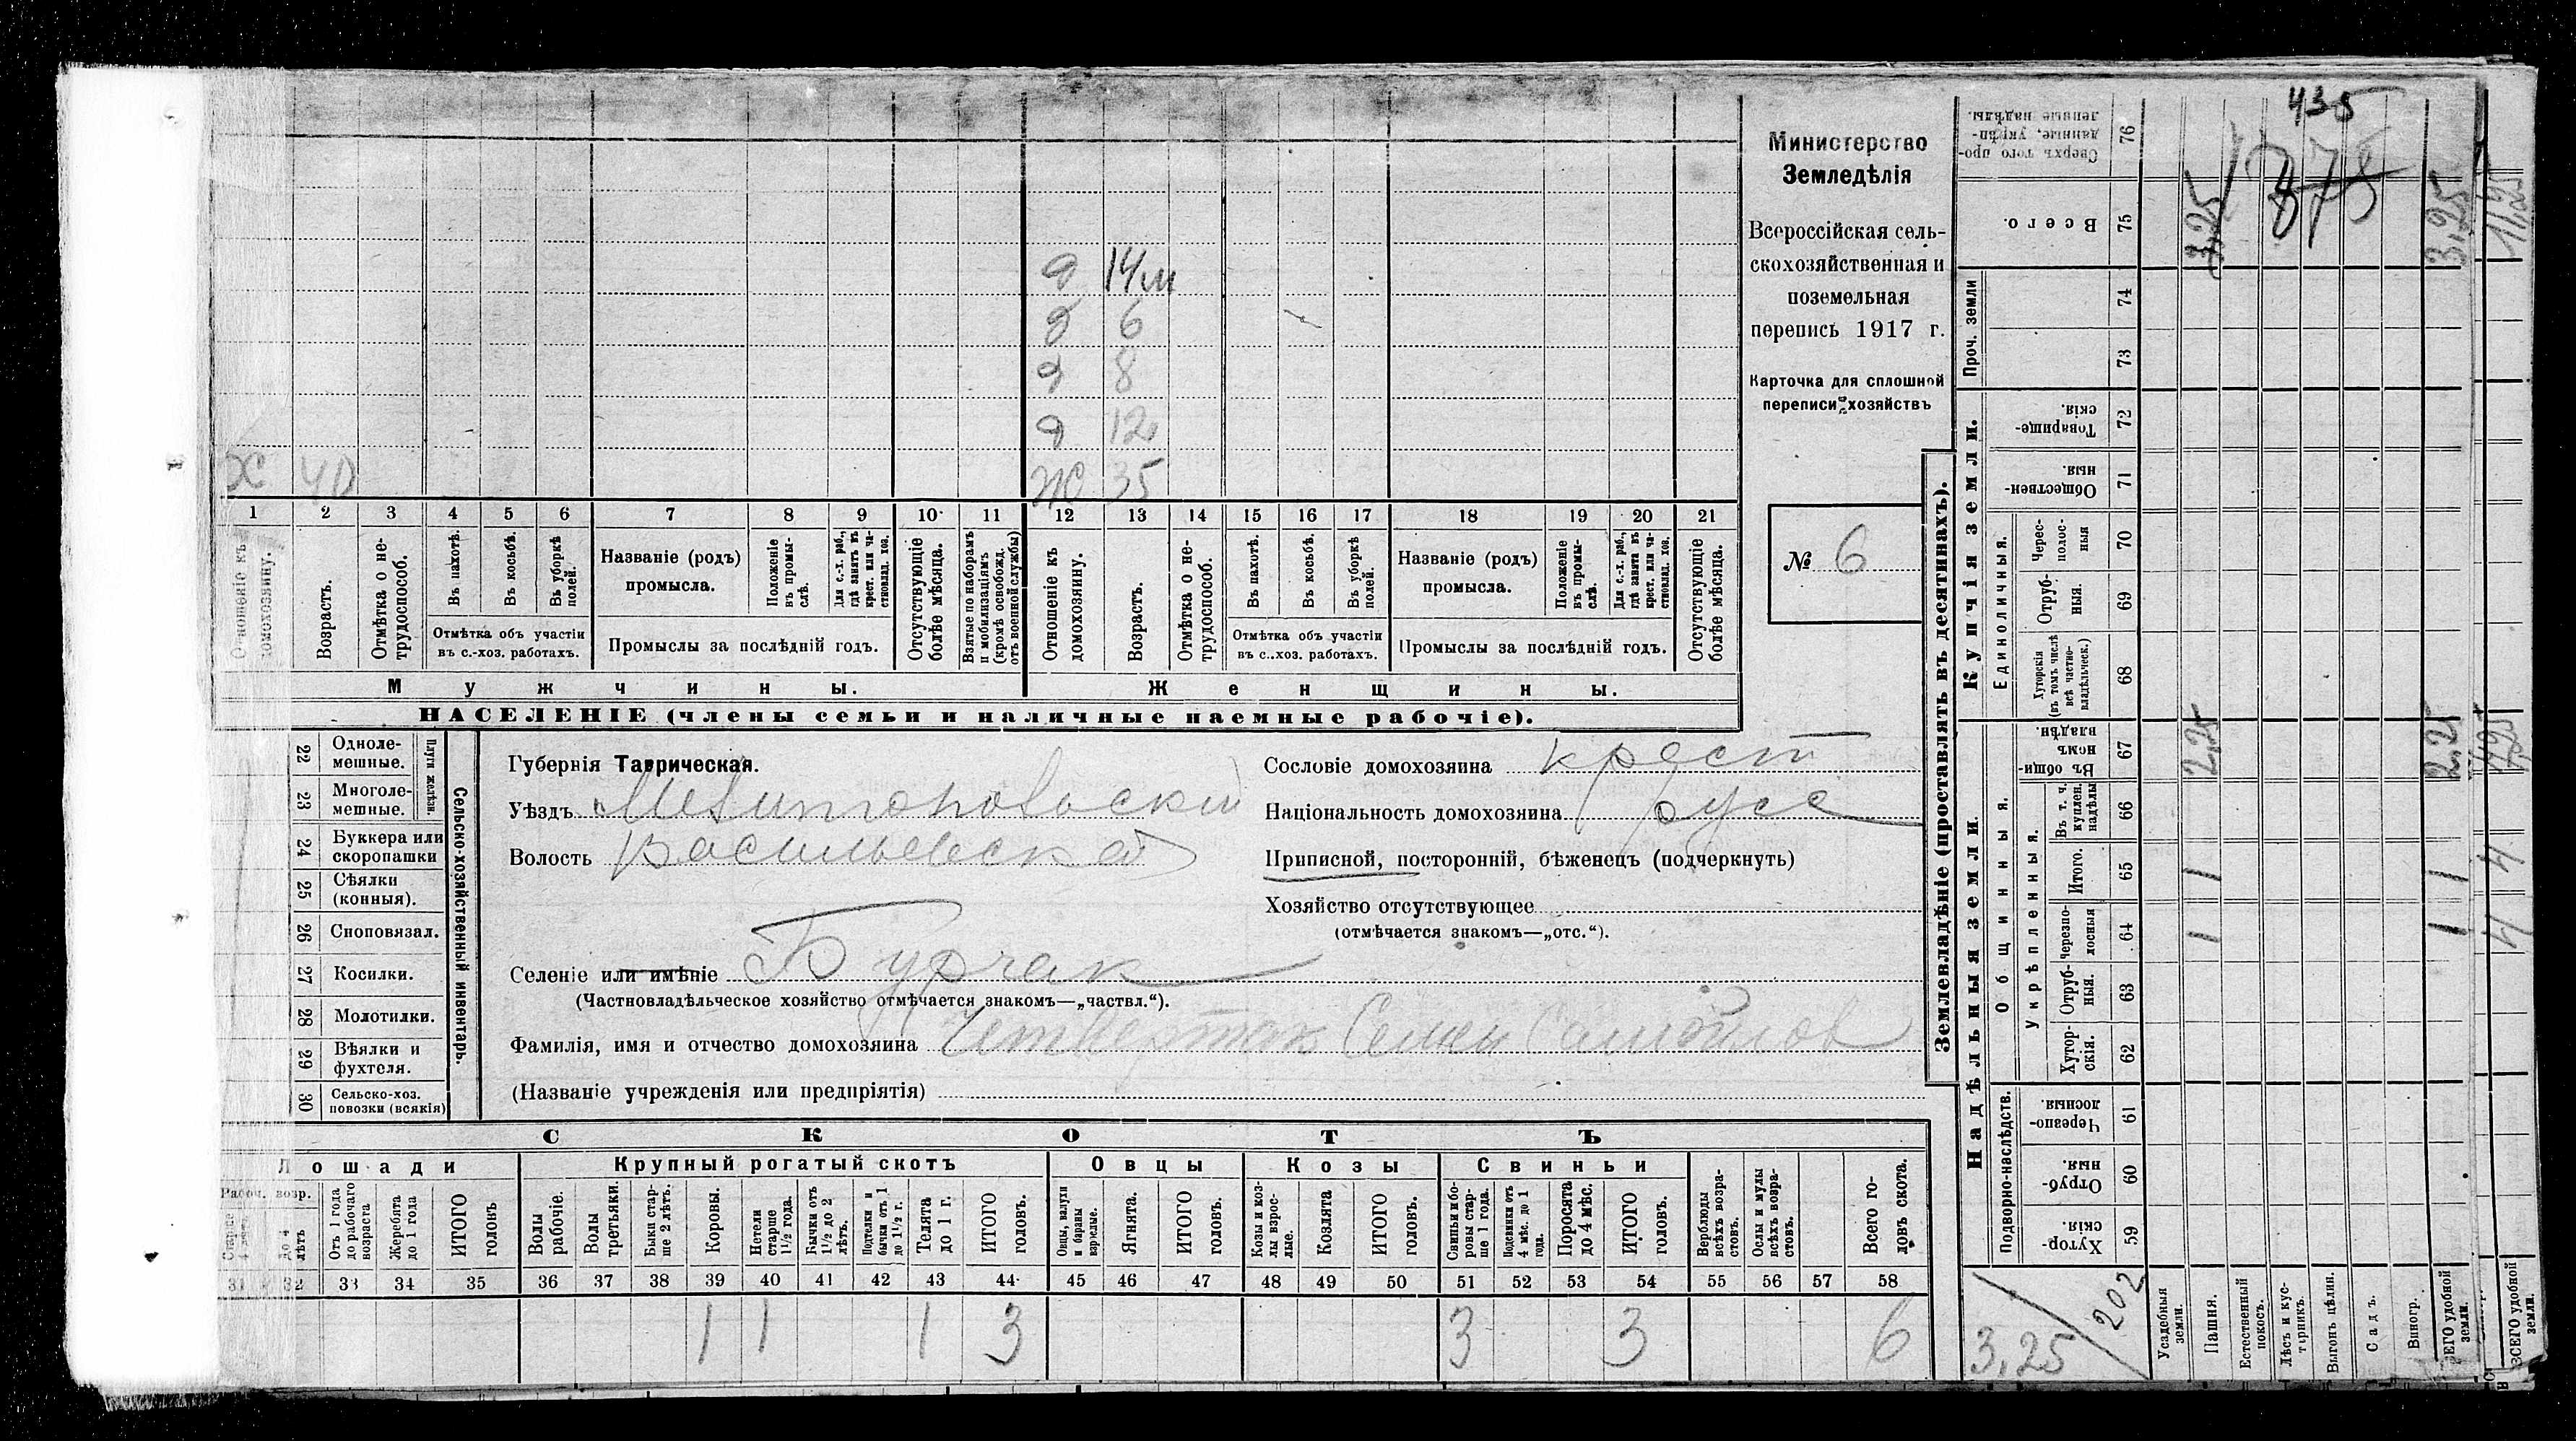 435
875
Министерство
Земледѣлія
Всероссійская сель-
скохозяйственная и
поземельная
перепись 1917 г.
Карточка для сплошной
переписи хозяйствъ
№ 6
д 14 м
д 6
д 8
д 12
Х 40
Ж 35
1 2 3 4 5 6 7 8 9 10 11 12 13 14 15 16 17 18 19 20 21
Отношеніе къ домохозяину.
Возрастъ.
Отмѣтка о не-трудоспособ.
Въ пахотѣ.
Въ косьбѣ.
Въ уборкѣ полей.
Отмѣтка объ участіи
въ с.-хоз. работахъ.
Названіе (родъ)
промысла.
Положеніе въ промы-слѣ.
Для с.-х. раб., гдѣ занятъ въ крест. или ча-стновлад. хоз.
Промыслы за послѣдній годъ.
Отсутствующіе болѣе мѣсяца.
Взятые по наборамъ и мобилизаціямъ (кромѣ освобожд. отъ военной службы)
Отношеніе къ домохозяину.
Возрастъ.
Отмѣтка о не-трудоспособ.
Въ пахотѣ.
Въ косьбѣ.
Въ уборкѣ полей.
Отмѣтка объ участіи
въ с.-хоз. работахъ.
Названіе (родъ)
промысла.
Положеніе въ промы-слѣ.
Для с.-х. раб., гдѣ занята въ крест. или ча-стновлад. хоз.
Промыслы за послѣдній годъ.
Отсутствующіе болѣе мѣсяца.
Мужчины. Женщины.
НАСЕЛЕНІЕ (члены семьи и наличные наемные рабочіе).
22 Одноле-мешные.
23 Многоле-мешные.
Плуги желѣзн.
24 Буккера или скоропашки
25 Сѣялки (конныя).
26 Сноповязал.
27 Косилки.
28 Молотилки.
29 Вѣялки и фухтеля.
30 Сельско-хоз. повозки (всякія)
Сельско-хозяйственный инвентарь.
Губернія Таврическая.
Уѣздъ Мелитопольскій
Волость Васильевская
Селеніе или имѣніе Бурчак
(Частновладѣльческое хозяйство отмѣчается знакомъ—„частвл.“).
Фамилія, имя и отчество домохозяина Четвертак Семен Самойлов
(Названіе учрежденія или предпріятія)
Сословіе домохозяина крест
Національность домохозяина русс
Приписной, посторонній, бѣженецъ (подчеркнуть)
Хозяйство отсутствующее
(отмѣчается знакомъ—„отс.“).
СКОТЪ
Лошади Крупный рогатый скотъ Овцы Козы Свиньи
Рабоч. возр.
Старше 4 лѣтъ
до 4 лѣтъ
Отъ 1 года до рабочаго возраста
Жеребята до 1 года
ИТОГО головъ
Волы рабочіе.
Волы третьяки.
Быки стар-ше 2 лѣтъ.
Коровы.
Нетели старше 1½ года.
Бычки отъ 1½ до 2 лѣтъ.
Подтелки и бычки отъ 1 до 1½ г.
Телята до 1 г.
ИТОГО головъ.
Овцы, валухи и бараны взрослые.
Ягнята.
ИТОГО головъ.
Козы и коз-лы взрос-лые.
Козлята
ИТОГО головъ.
Свиньи и бо-ровы стар-ше 1 года.
Подсвинки отъ 4 мѣс. до 1 года.
Поросята до 4 мѣс.
ИТОГО головъ.
Верблюды всѣхъ возра-стовъ.
Ослы и мулы всѣхъ возра-стовъ.
Всего го-ловъ скота.
31 32 33 34 35 36 37 38 39 40 41 42 43 44 45 46 47 48 49 50 51 52 53 54 55 56 57 58
1 1 1 3 3 3 6
Землевладѣніе (проставлять въ десятинахъ).
Надѣльныя земли. Купчія земли. Проч. земли
Подворно-наслѣдств.
Общинныя.
Укрѣпленныя.
Единоличныя.
59 Хутор-скія.
60 Отруб-ныя.
61 Черезпо-лосныя
62 Хутор-скія.
63 Отруб-ныя.
64 Черезпо-лосныя
65 Итого.
66 Въ т. ч. куплен. надѣлы
67 Въ общи-номъ владѣн.
68 Хуторскія (въ томъ числѣ всѣ частно-владѣльческ.)
69 Отруб-ныя.
70 Черес-полос-ныя
71 Обществен-ныя.
72 Товарище-скія.
73
74
75 Всего.
76 Сверхъ того про-данные, укрѣп-ленные надѣлы.
Усадебныя земли.
Пашня.
Естественный покосъ.
Лѣсъ и кус-тарникъ.
Выгонъ цѣлин.
Садъ.
Виногр.
ВСЕГО удобной земли.
ВСЕГО удобной земли.
1 1 2,25 3,25
1 1 2,25 3,25
4 4 7,25 11,25
3,25 / 202